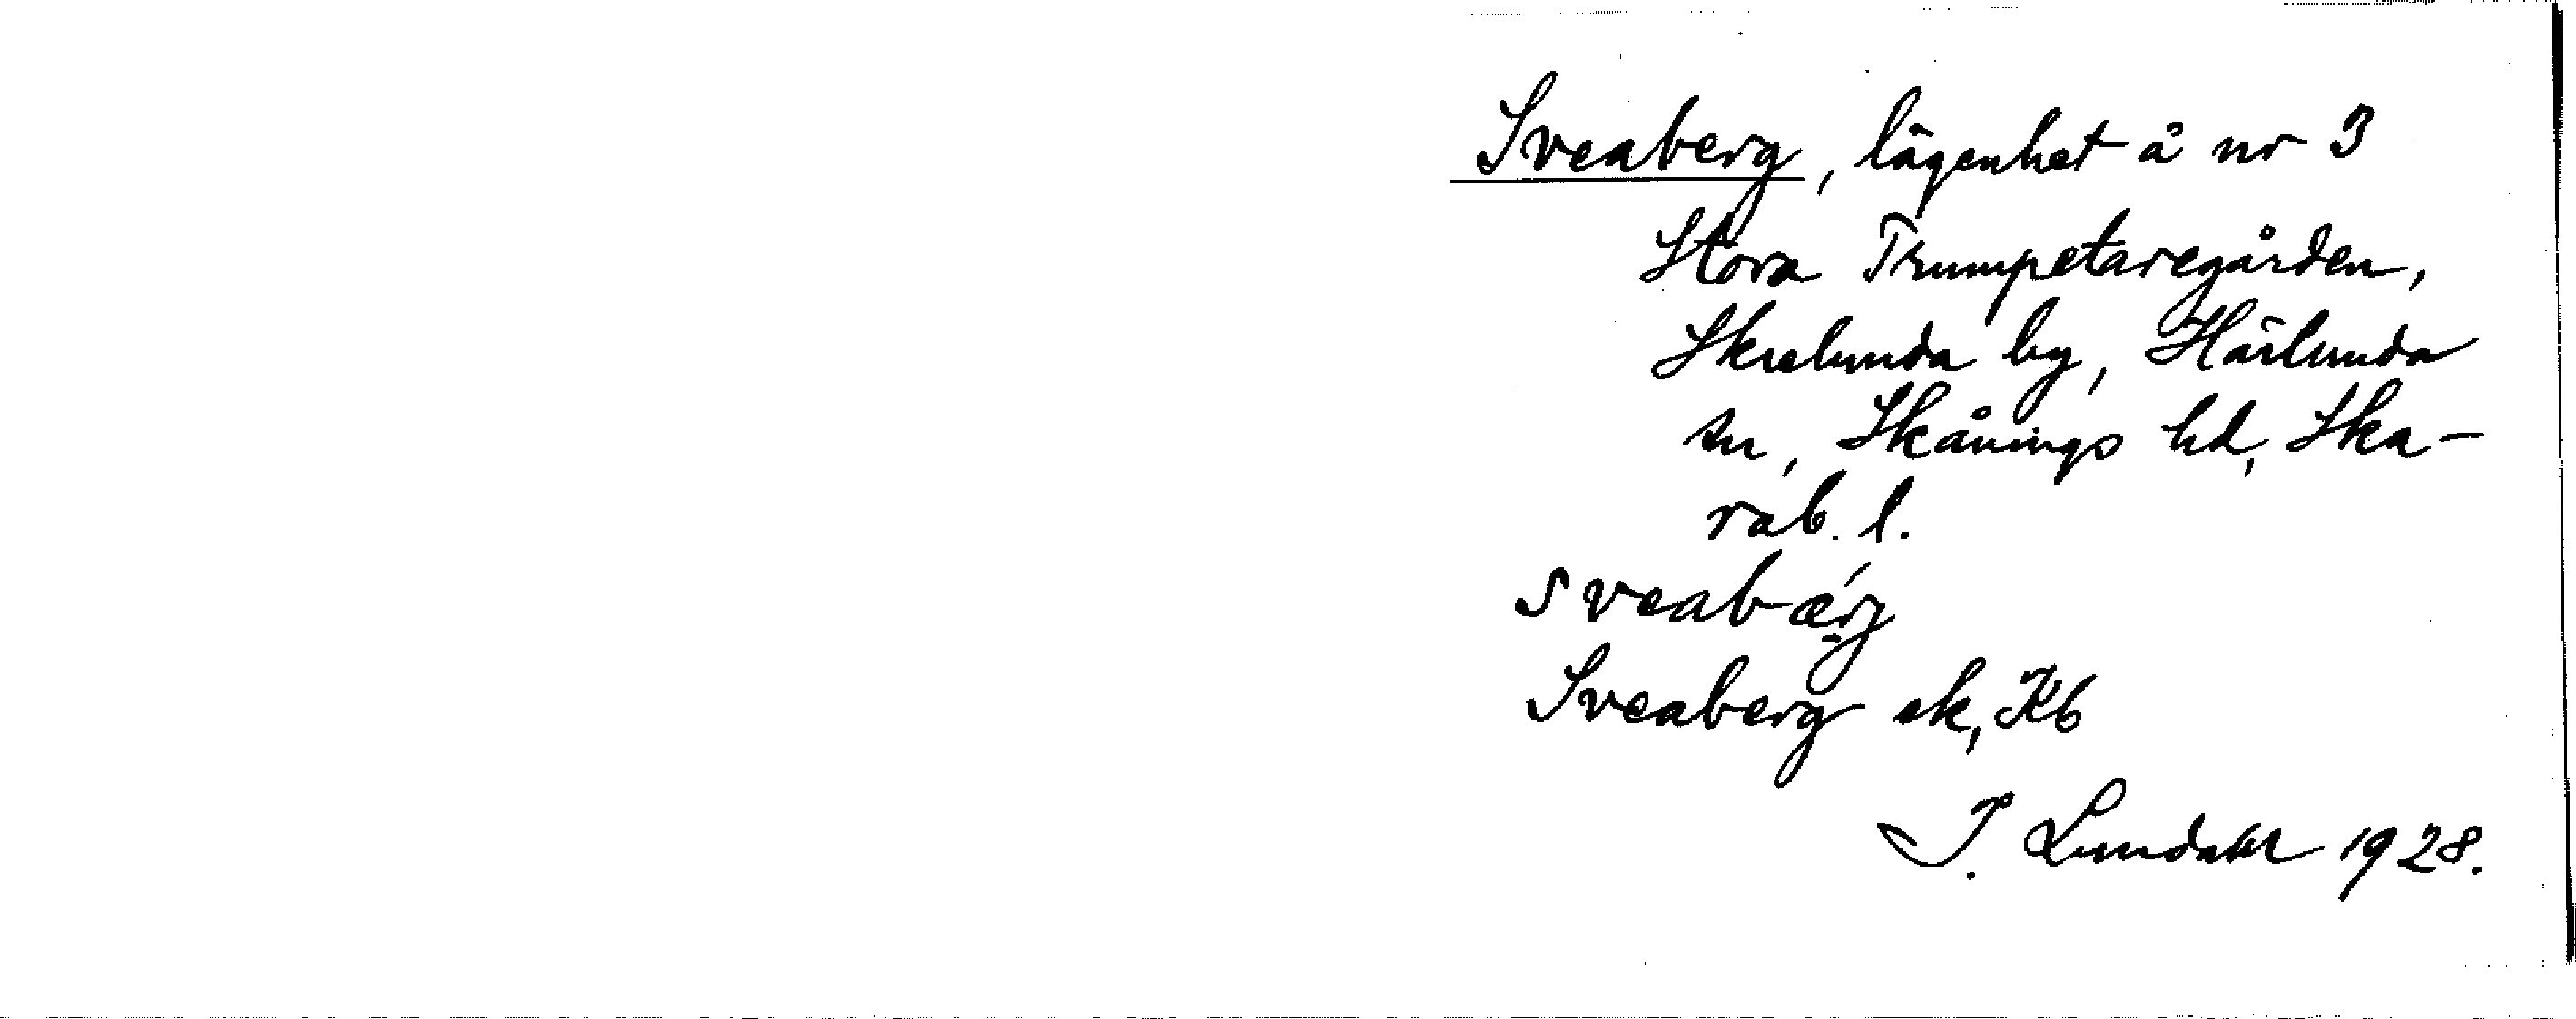 Sveaberg, lägenhet å nr 3
Stora Trumpetaregården,
Skrelunda by, Härlunda
sn, Skånings hd, Ska-
rab. l.
sveabærj
Sveaberg ek, Kb
I. Lundahl 1928.